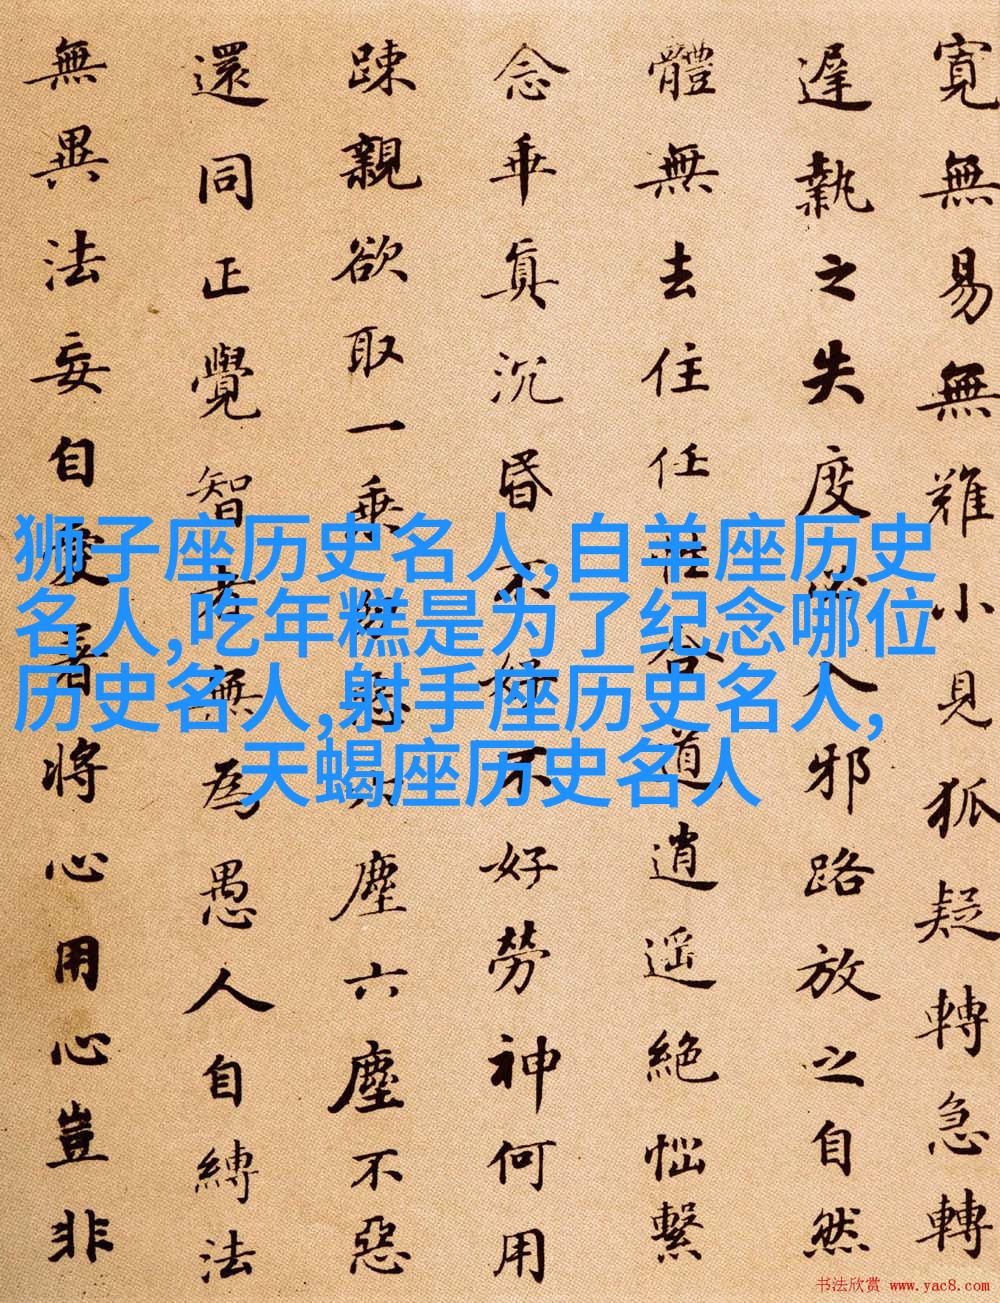 寬無易無難小見狐疑轉急轉
遲執之失度必入邪路放之自然
體無去住任性合道逍遥絕惱繫
念乖真沉昏不好不好勞神何用
踈親欲取一乘勿惡六塵六塵不惡
還同正覺智者無為愚人自縛法
無異法妄自愛著將心用心豈非
狮子座历史名人,白羊座历史
名人,吃年糕是为了纪念哪位
历史名人,射手座历史名人,
天蝎座历史名人
书法欣赏 www.yac8.com